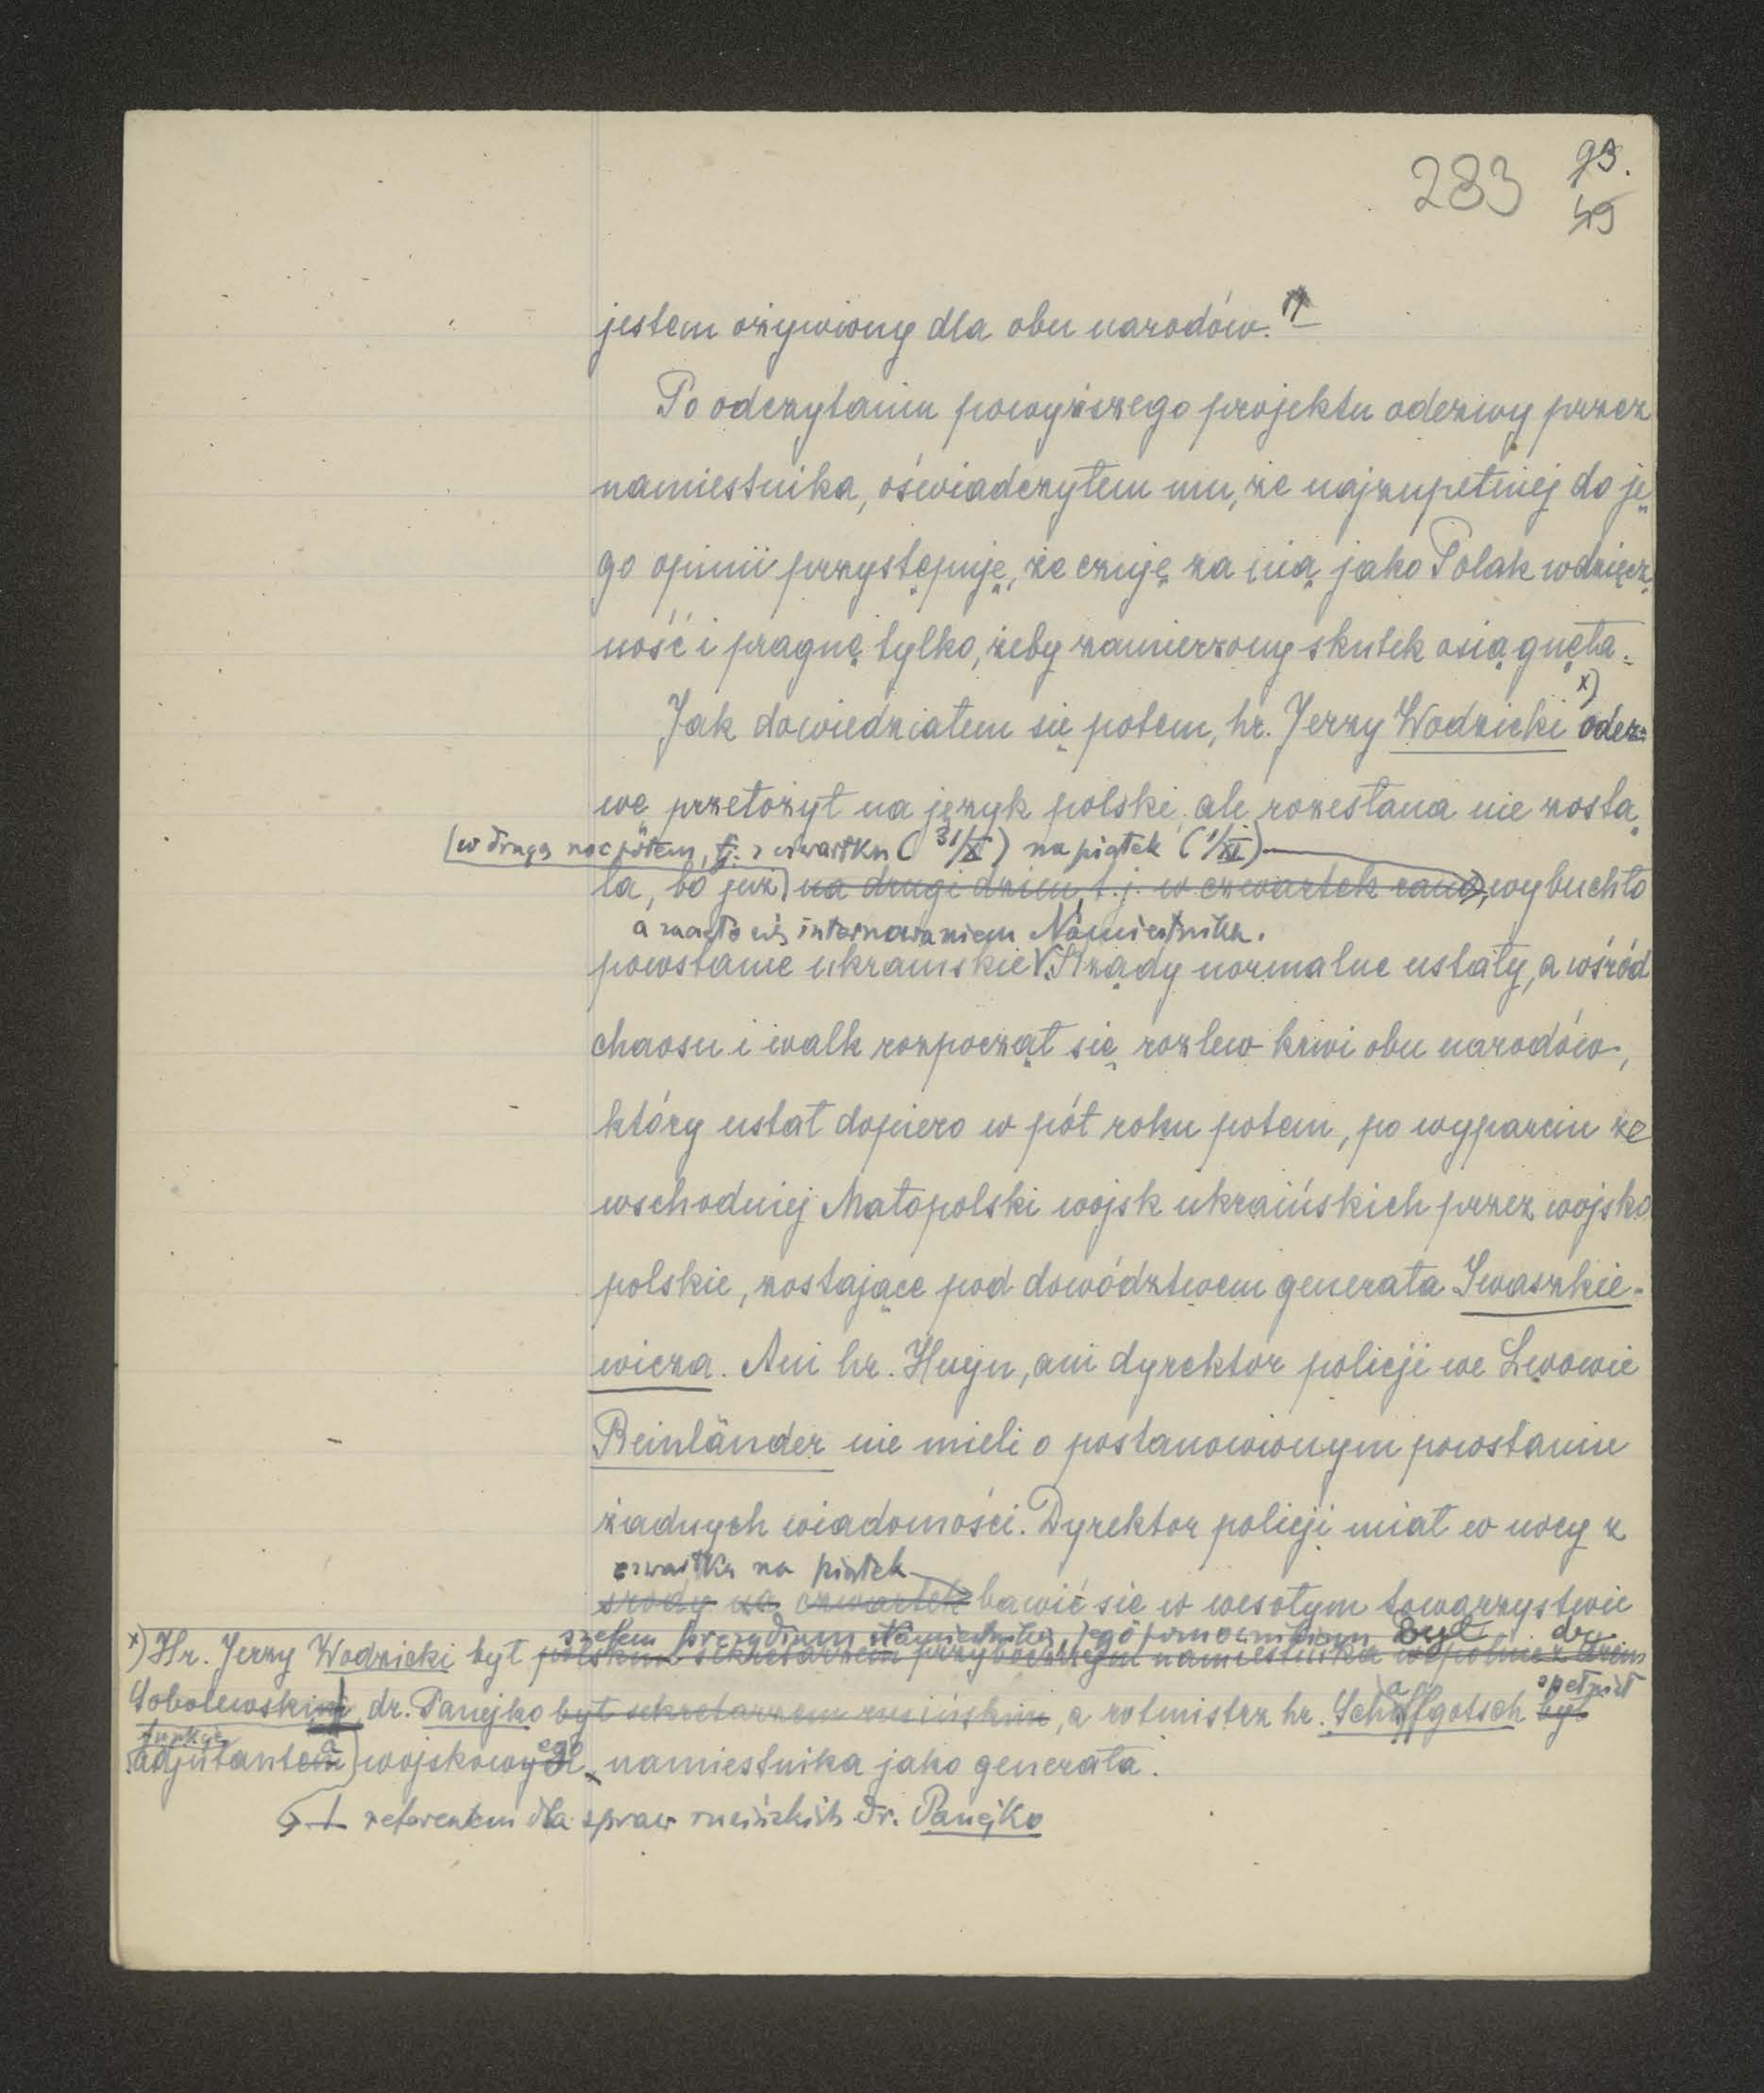 283 93.
49
jestem ożywiony dla obu narodów."
Po odczytaniu powyższego projektu odezwy przez
namiestnika, oświadczyłem mu, że najzupełniej do je
go opinii przystępuję, że czuję za nią jako Polak wdzięcz
ność i pragnę tylko, żeby zamierzony skutek osiągnęła.
Jak dowiedziałem się potem, hr. Jerzy Wodzicki x) odez=
wę przełożył na język polski, ale rozesłana nie zosta
(w drugą noc potem, t.j. z czwartku (31/X) na piątek (1/XI)
ła, bo już) na drugi dzień, t.j. w czwartek rano, wybuchło
a zaczęło się internowaniem Namiestnika.
powstanie ukraińskie V. Rządy normalne ustały, a wśród
chaosu i walk rozpoczął się rozlew krwi obu narodów,
który ustał dopiero w pół roku potem, po wyparciu ze
wschodniej Małopolski wojsk ukraińskich przez wojsko
polskie, zostające pod dowództwem generała Iwaszkie-
wicza. Ani hr. Huyn, ani dyrektor policji we Lwowie
Reinländer nie mieli o postanowionym powstaniu
żadnych wiadomości. Dyrektor policji miał w nocy z
czwartku na piątek
środy na czwartek bawić się w wesołym towarzystwie
szefem prezydium Namiestnika, jego pomocnikiem był dr.
x) Hr. Jerzy Wodzicki był polskim sekretarzem przybocznym namiestnika wspólnie z drem
Sobolewskim, dr. Panejko był sekretarzem ruskińskim, a rotmistrz hr. Schaffgotsch był
spełniał
funkcje
adjutanta wojskowego namiestnika jako generała.
referentem dla spraw ruskińskich dr. Panejko